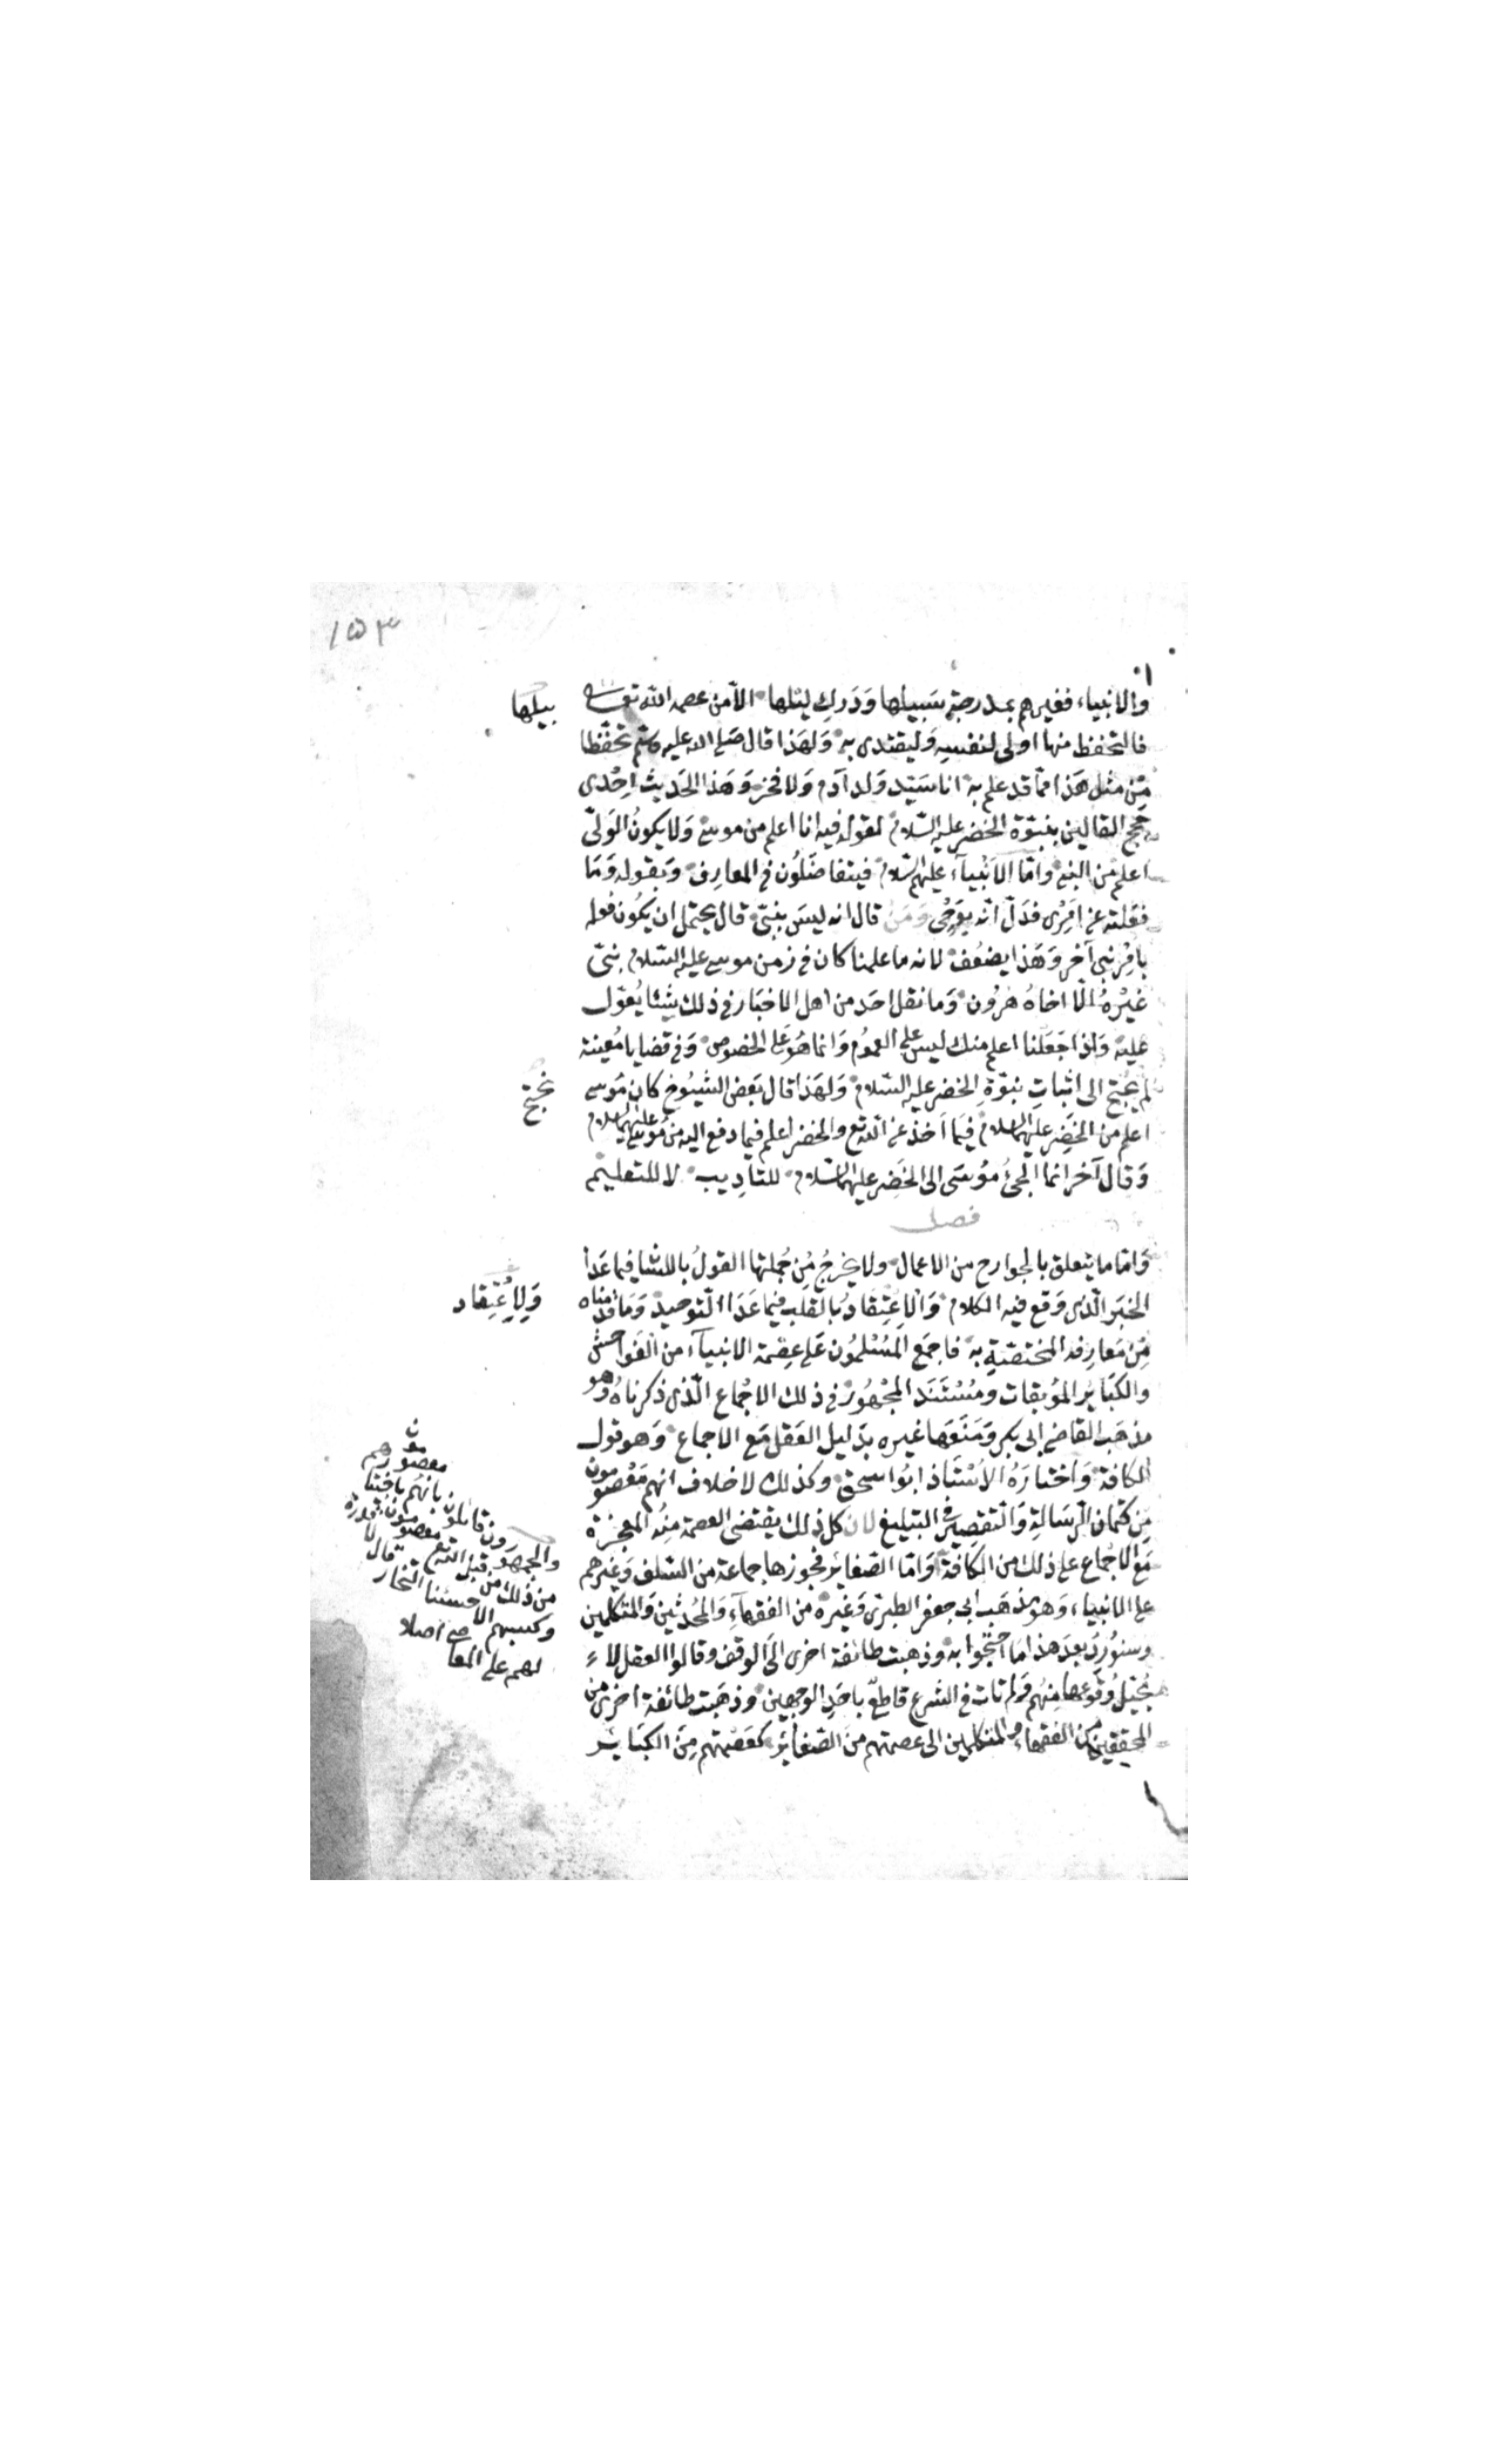 ١٥٣
والانبياء فغيرهم بمدرجة سَبيلها وَدَركِ ليْلها الّا من عصمه اللّٰه تعالى
بيلها
فالتحفظ منها اولى لنفسِه وَليقتدى به وَلهَذا قال صَلى الله عليه وسلم تحفّظا
مِن مثل هَذا ممّا قد علم به انا سَيّد وَلد آدم وَلا فخر وَهَذا الحَديث احْدى
حُجج القائلين بنبوّة الخضر عليه السّلام لقوله فيه انا اعلم من موسى وَلا يكونُ الوَلىّ
اعلم من النبى وامّا الانبيآء عليهم السّلام فيتفاضَلُون فى المعارف وَبقوله وَمَا
فعَلته عن امْرى فدَلّ انّه بوَحْى وَمَنْ قال انه ليسَ بنبىّ قال يحتمل ان يكُون فعله
بامْر نبى آخر وَهَذا يضعُف لانه ما علمنا كان فى زمن موسى عليه السّلام نبىّ
غيْرهُ الّا اخاهُ هٰرُون وَما نقل احَد من اهل الاخبَار فى ذلك شيْئا يُعَوّل
عليْه وَاذا جَعَلنا اعلم منك ليس على العمُوم وَانما هُوَ عَلى الخصُوص وَفى قضايا مُعينة
لم يُحتج الى اثباتِ نبوّةِ الخضر عليه السّلام وَلهَذا قال بَعض الشيُوخ كان مُوسى
نحتج
اعلم من الخَضِر عليهما السلام فيمَا اَخذ عن اللّٰه تع والخضر اعلم فيما دفع اليه من مُوسى عليهما السلام
وَقال آخر انما الجئ مُوسَى الى الخَضِر عليهما السّلام للتاديب لا للتعليْم
فصل
وَامّا ما يتعلق بالجوارح من الاعمال ولا يخرجُ مِن جُملتها القولُ باللسَان فيما عَدَا
الخبَر الّذى وَقع فيه الكلام وَالْاِعْتِقادُ بالقلب فيما عَدَا التّوحيد وَمَا قدّمناه
وَلِاِعْتِقاد
مِنْ مَعارفه المختصّةِ به فاجمَع المُسْلمُون عَلى عِصْمة الانبيآء من الفَواحش
والكبَائِر المُوبقات وَمُسْتَنَد الجُمْهُور فى ذلك الاجْماع الّذى ذكرناهُ وَهو
مذهَب القاضى ابى بكر وَمَنَعَها غيره بدَليل العَقل مَع الاجماع وَهو قول
الكافة وَاختارَهُ الاُسْتَاذ ابُو اسحق وكذلك لا خلاف انهم مَعْصُومون
مِن كتمان الرّسَالةِ وَالتّقصِير فى التبليغ لان كل ذلك يقتضى العصمة مِنْهُ المعجزة
مَع الاجْماع على ذلك من الكافة وَامّا الصّغائر فجوزها جماعة من السّلف وَغيرهم
على الانبياء وَهو مذهَب ابى جعفر الطبرىّ وَغيره من الفقهآءِ وَالمُحدّثين وَالمتكلمين
وسنُورُد بعدَ هذا مَا احْتجّوا به وَذهبت طائفة اخرى الى الوقف وقالوا العقل لا
يُحيلُ وُقوعها مِنهُم وَلم يات فى الشرع قاطعٌ باحَدِ الوجهين وذهَبَت طائفة اخرى من
المحققين من الفقهاء والمتكلمين الى عصمتهم من الصّغائر كعصْمتهم مِنَ الكبَائر
والجمهور قائلون بانهُم
معصومون
من ذلك من قبل اللّٰه تع
معصومون
الا حسَينا النجّار قال لا قدرة
لهم على المعاصى اصلا